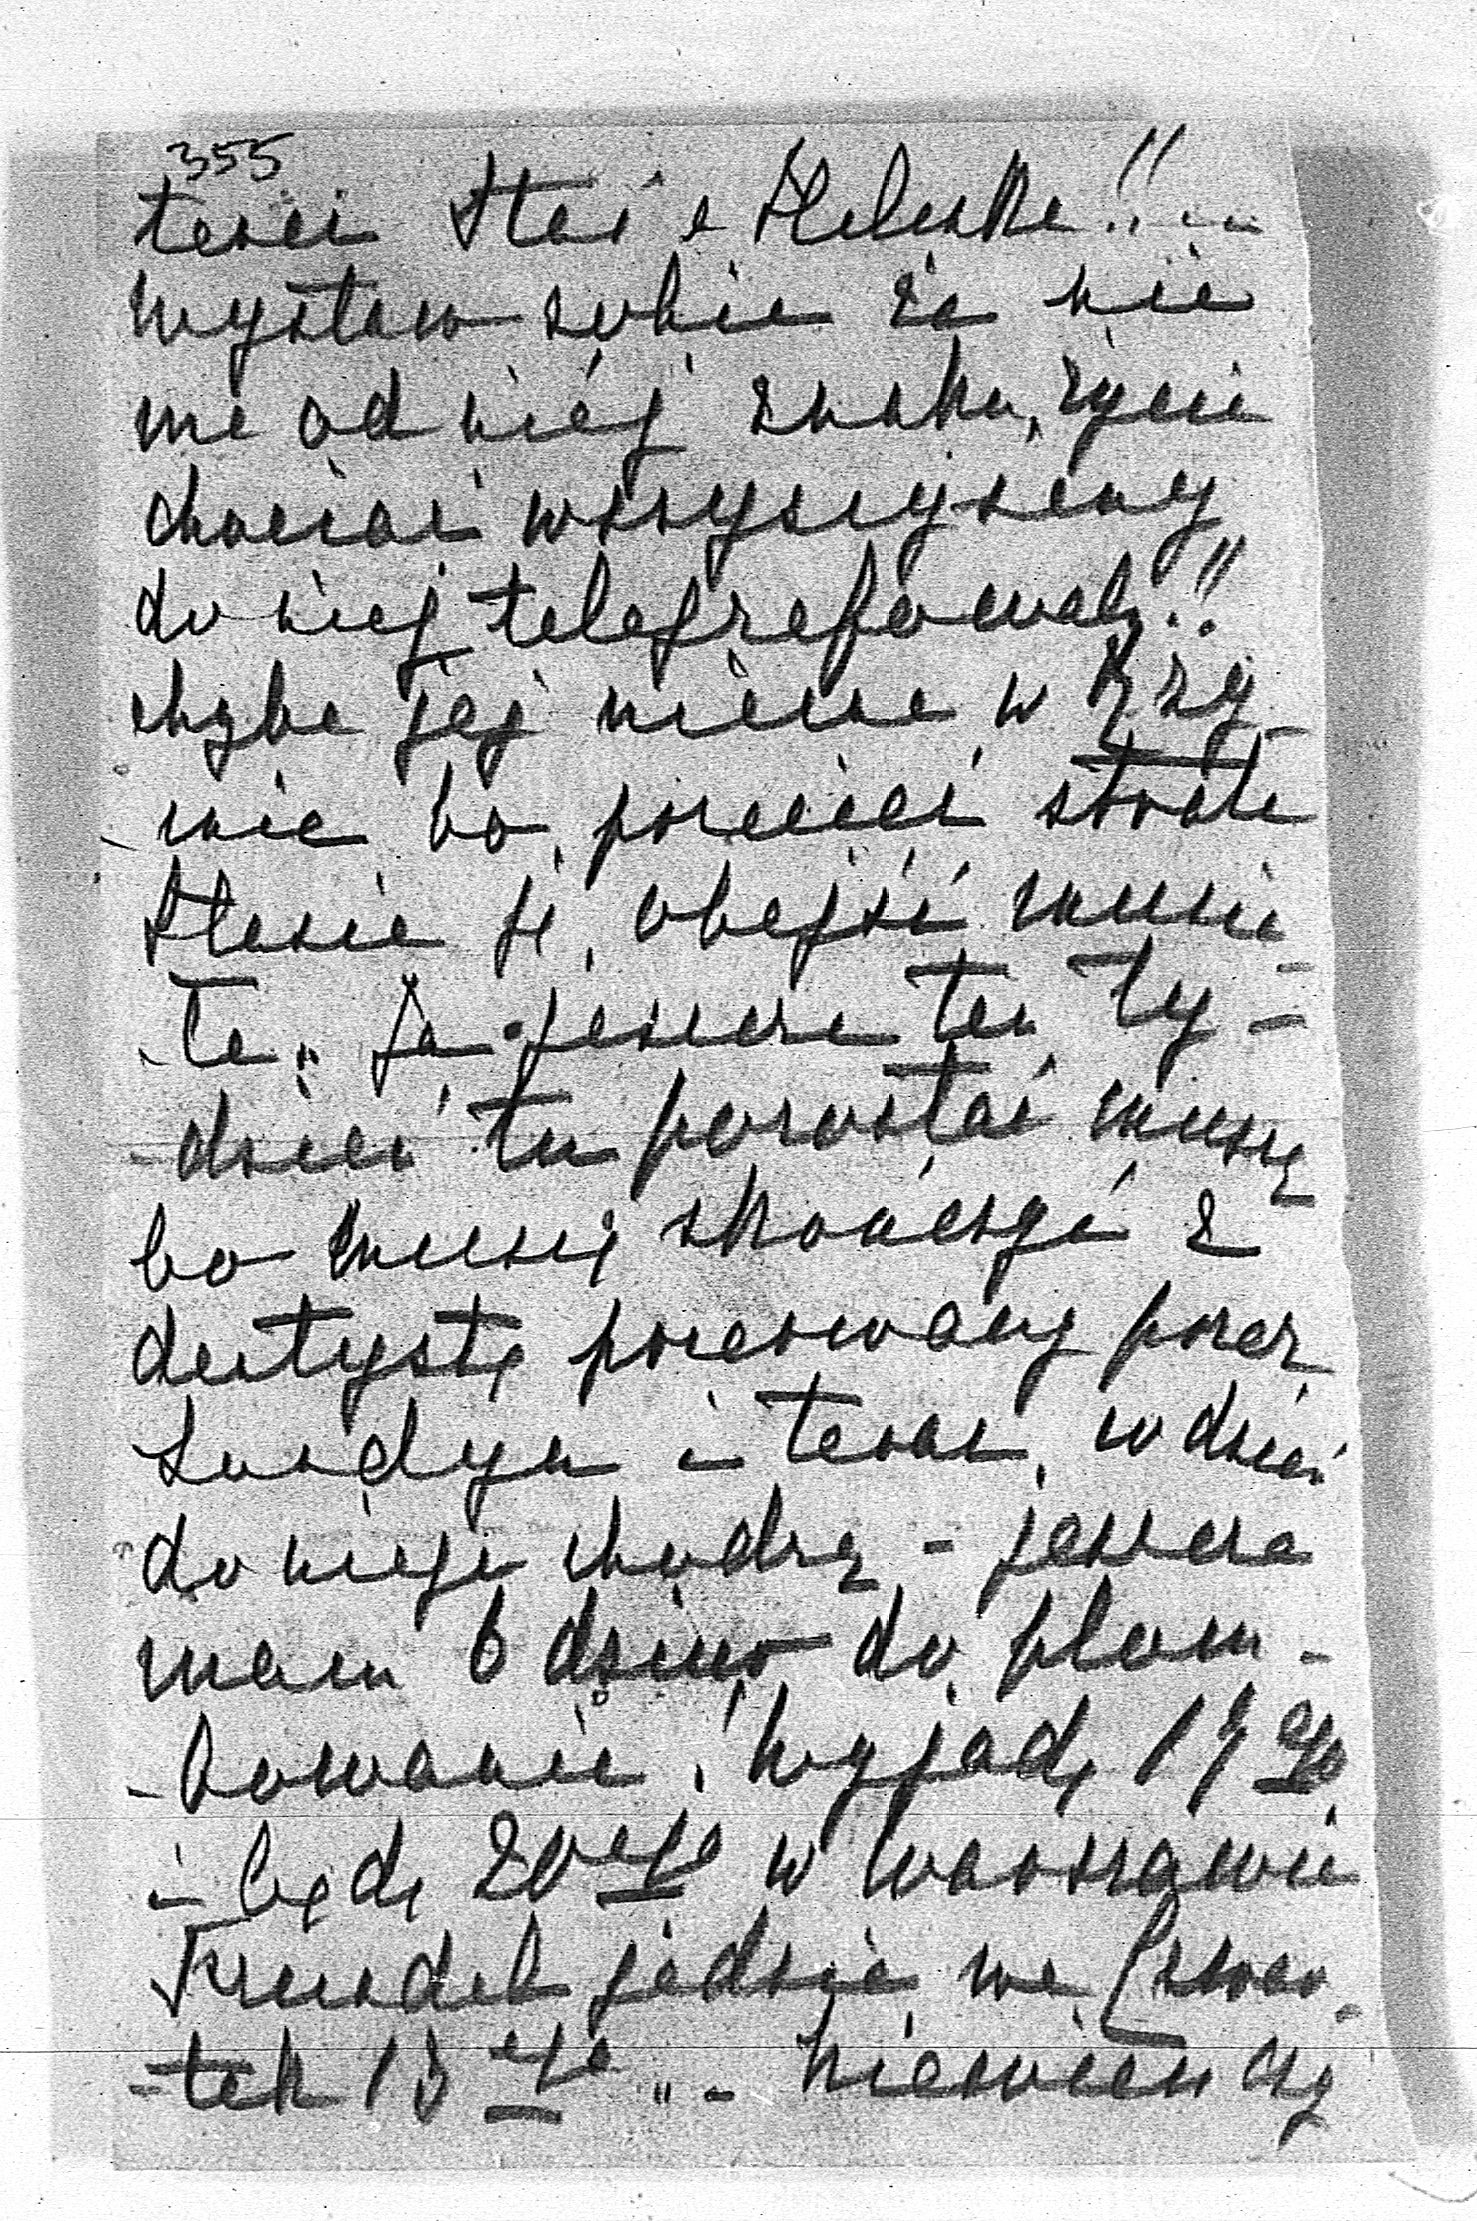 355
teraz Staś i Heluśka!! —
wystaw sobie że nie
ma od niej znaku życia
chociaż wszyscyśmy
do niej telegrafowali!!
chyba jej niema w Rzy_
mie bo przecież strata
Stasia ją obejść musia
- ta „ Ja jeszcze ten ty -
- dzień tu pozostać muszę
bo muszę skończyć z
dentystą przerwany przez
Londyn i teraz codzień
do niego chodzę - jeszcze
mam 6 dziur do plom -
- bowania, wyjadę 19 ego
i będę 20 ego w Warszawie
Fruzdel jedzie we Czwar_
- tek 13 ego „ - Niewiem czy